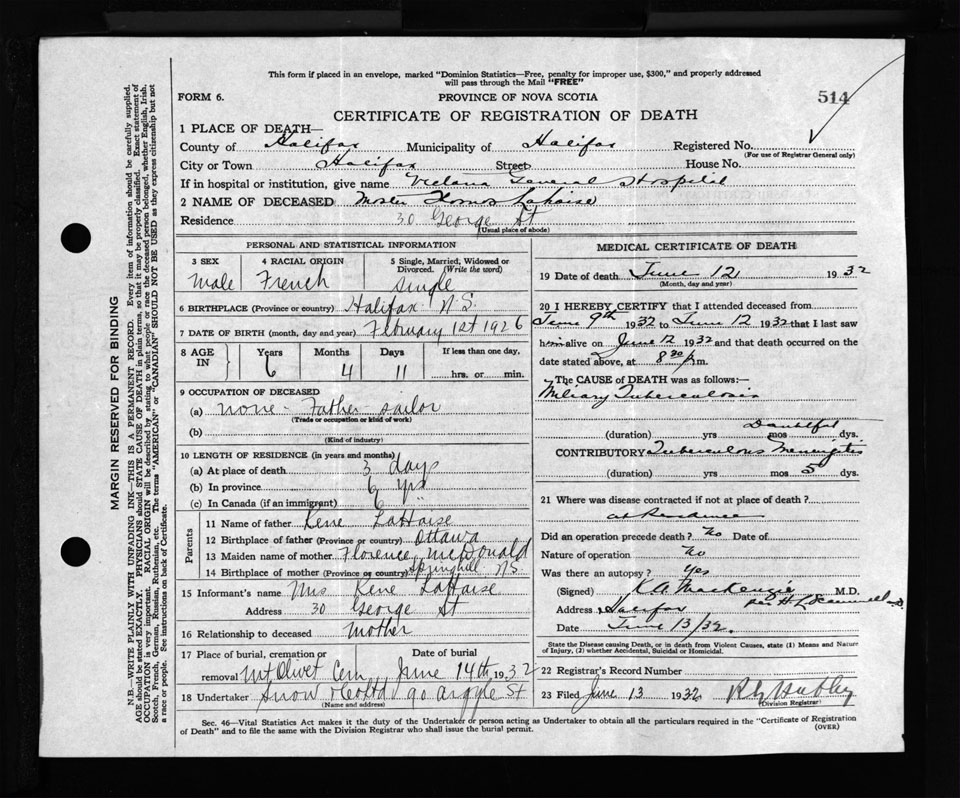 This form if placed in an envelope, marked "Dominion Statistics—Free, penalty for improper use, $300," and properly addressed
will pass through the Mail "FREE"
FORM 6.
PROVINCE OF NOVA SCOTIA
514
CERTIFICATE OF REGISTRATION OF DEATH
1 PLACE OF DEATH—
County of Halifax Municipality of Halifax Registered No.
(For use of Registrar General only)
City or Town Halifax Street House No.
If in hospital or institution, give name Victoria General Hospital
2 NAME OF DECEASED Master Thomas LaHaise
Residence 30 George St
(Usual place of abode)
PERSONAL AND STATISTICAL INFORMATION
3 SEX 4 RACIAL ORIGIN 5 Single, Married, Widowed or
Divorced. (Write the word)
Male French Single
6 BIRTHPLACE (Province or country) Halifax N.S.
7 DATE OF BIRTH (month, day and year) February 1st 1926
8 AGE IN Years Months Days If less than one day,
6 4 11 hrs. or min.
9 OCCUPATION OF DECEASED
(a) none - Father sailor
(Trade or occupation or kind of work)
(b)
(Kind of industry)
10 LENGTH OF RESIDENCE (in years and months)
(a) At place of death 3 days
(b) In province 6 yrs
(c) In Canada (if an immigrant) 6 "
Parents
11 Name of father Rene LaHaise
12 Birthplace of father (Province or country) Ottawa
13 Maiden name of mother Florence McDonald
14 Birthplace of mother (Province or country) Springhill N.S.
15 Informant's name Mrs Rene LaHaise
Address 30 George St
16 Relationship to deceased Mother
17 Place of burial, cremation or Date of burial
removal Mt Olivet Cem June 14th 1932
18 Undertaker Snow & Co Ltd 90 Argyle St
(Name and address)
MEDICAL CERTIFICATE OF DEATH
19 Date of death June 12 1932
(Month, day and year)
20 I HEREBY CERTIFY that I attended deceased from
June 9th 1932 to June 12 1932 that I last saw
him alive on June 12 1932 and that death occurred on the
date stated above, at 8 30 p.m.
The CAUSE OF DEATH was as follows:—
Miliary Tuberculosis
Doubtful
(duration) yrs mos dys.
CONTRIBUTORY Tuberculous Meningitis
(duration) yrs mos 5 dys.
21 Where was disease contracted if not at place of death?
at Residence
Did an operation precede death? No Date of
Nature of operation No
Was there an autopsy? Yes
(Signed) K A MacKenzie M.D.
per H L
Address Halifax
Date June 13/32.
State the Disease causing Death, or in Death from Violent Causes, state (1) Means and Nature
of Injury, (2) whether Accidental, Suicidal or Homicidal.
22 Registrar's Record Number
23 Filed June 13 1932
(Division Registrar)
Sec. 46—Vital Statistics Act makes it the duty of the Undertaker or person acting as Undertaker to obtain all the particulars required in the "Certificate of Registration
of Death" and to file the same with the Division Registrar who shall issue the burial permit.
(OVER)
MARGIN RESERVED FOR BINDING
N.B.—WRITE PLAINLY WITH UNFADING INK—THIS IS A PERMANENT RECORD. Every item of information should be carefully supplied.
AGE should be stated EXACTLY. PHYSICIANS should STATE CAUSE OF DEATH in plain terms, so that it may be properly classified. Exact statement of
OCCUPATION is very important. RACIAL ORIGIN will be described by stating to what people or race the deceased person belonged, whether English, Irish,
Scotch, French, German, Russian, Ruthenian, etc. The terms "AMERICAN" or "CANADIAN" SHOULD NOT BE USED as they express citizenship but not
a race or people. See instructions on back of Certificate.